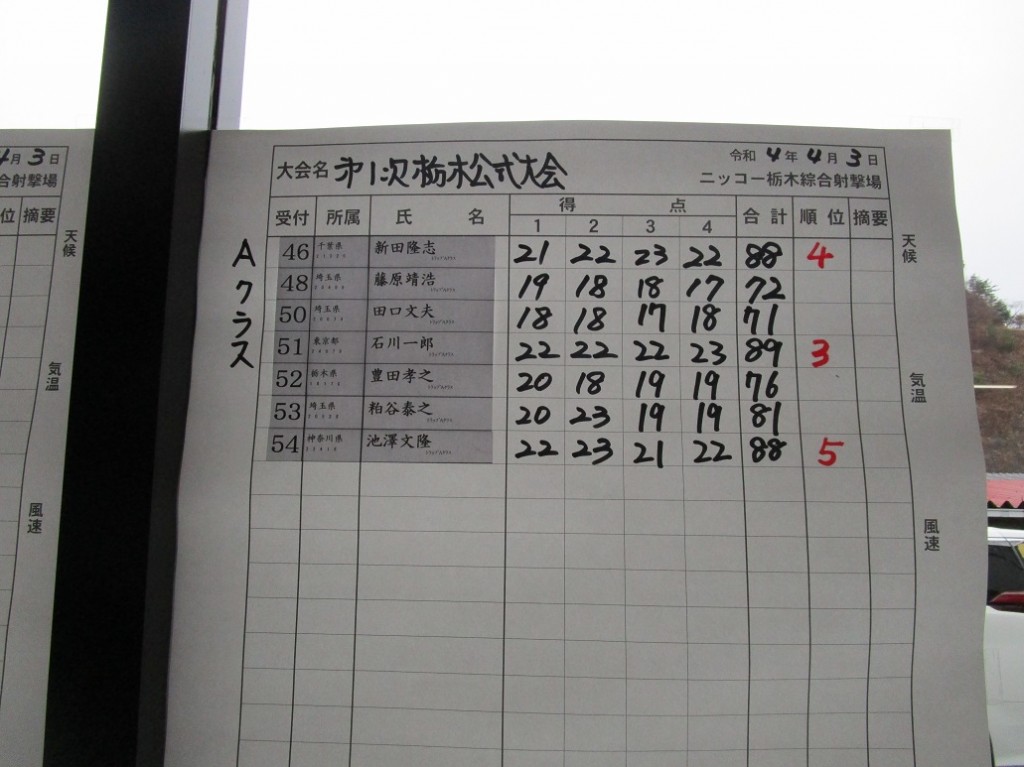 4月3日
合射撃場
位 摘要
天候
気温
風速
大会名 第1次栃木公式大会 令和4年4月3日
ニッコー栃木綜合射撃場
受付 所属 氏名 得点 合計 順位 摘要
1 2 3 4
Aクラス
46 千葉県 新田隆志 21 22 23 22 88 4
48 埼玉県 藤原靖浩 19 18 18 17 72
50 埼玉県 田口文夫 18 18 17 18 71
51 東京都 石川一郎 22 22 22 23 89 3
52 栃木県 豊田孝之 20 18 19 19 76
53 埼玉県 粕谷泰之 20 23 19 19 81
54 神奈川県 池澤文隆 22 23 21 22 88 5
天候
気温
風速